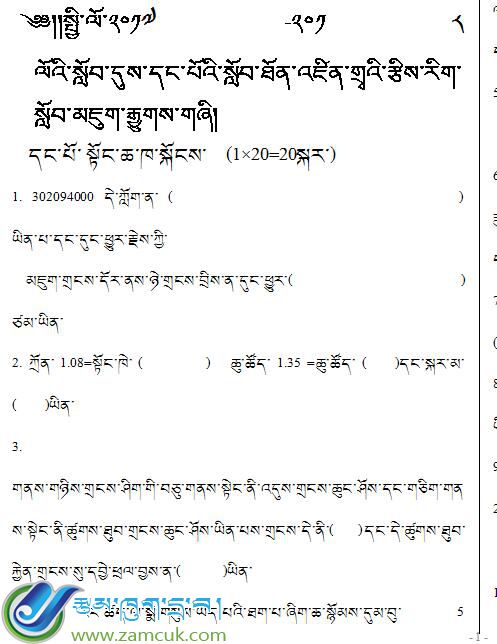 ༄༅།།སྤྱི་ལོ་༢༠༡༧ -༢༠༡ ༨
ལོའི་སློབ་དུས་དང་པོའི་སློབ་ཐོན་འཛིན་གྲྭའི་རྩིས་རིག་
སློབ་མཇུག་རྒྱུགས་གཞི།
དང་པོ་ སྟོང་ཆ་ཁ་སྐོངས་ (1×20=20སྐར་)
1. 302094000 དེ་ཀློག་ན་ ( )
ཡིན་པ་དང་དུང་ཕྱུར་རྗེས་ཀྱི་
མཇུག་གྲངས་དོར་ནས་ཉེ་གྲངས་བྲིས་ན་དུང་ཕྱུར་( )
ཙམ་ཡིན་
2. ཀྲོན་ 1.08=སྟོང་ཁེ་ ( ) ཆུ་ཚོད་ 1.35 =ཆུ་ཚོད་ ( )དང་སྐར་མ་
( )ཡིན་
3.
གནས་གཉིས་གྲངས་ཤིག་གི་བཅུ་གནས་སྟེང་ནི་འདུས་གྲངས་ཆུང་ཤོས་དང་གཅིག་གན
ས་སྟེང་ནི་ཚུགས་ཐུབ་གྲངས་ཆུང་ཤོས་ཡིན་པས་གྲངས་དེ་ནི་( )དང་དེ་ཚུགས་ཐུབ་
རྐྱེན་གྲངས་སུ་དབྱེ་ཕྲལ་བྱས་ན་( )ཡིན་
པའི་ཐག་པ་ཞིག་ཆ་སྙོམས་དུམ་བུ་ 5
www.zamcuk.com
- 1